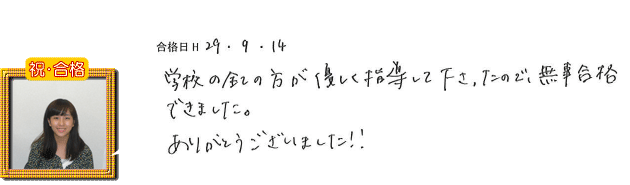 祝・合格
合格日 H 29 . 9 . 14
学校の全ての方が優しく指導して下さったので、無事合格
できました。
ありがとうございました!!